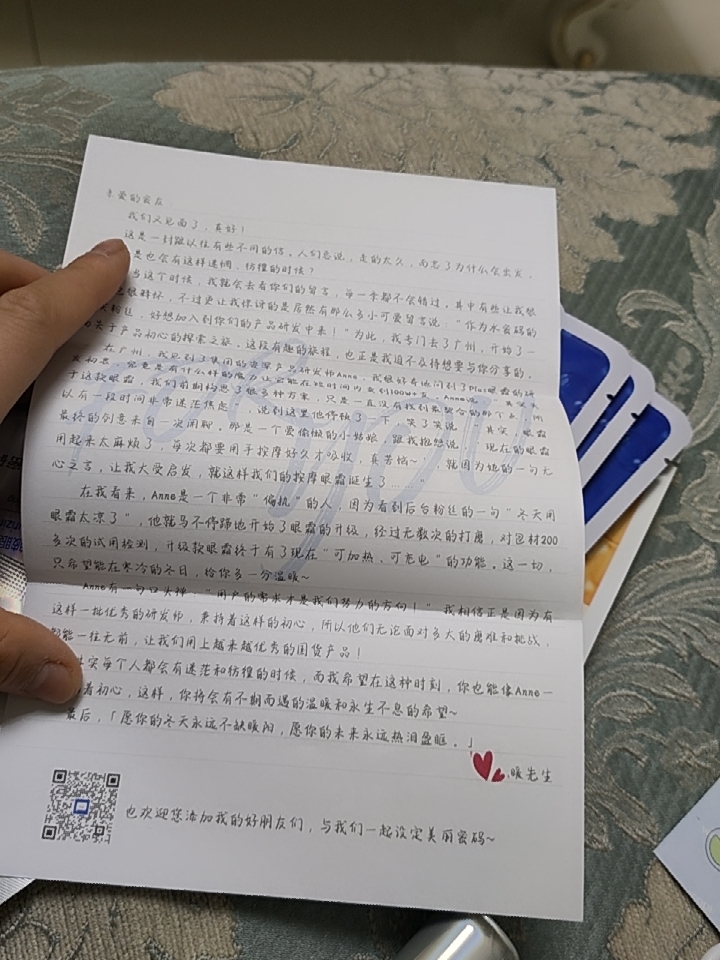 亲爱的
我们又见面了，真好！
这是一封跟以往有些不同的信。人们总说，走的太久，而忘了为什么会出发，
是也会有这样迷惘、彷徨的时候？
当这个时候，我就会去看你们的留言，每一季都不会错过，其中有些让我
很鲜怀，不过更让我惊讶的是居然有那么多小可爱留言说："作为水密码的
粉丝，好想加入到你们的产品研发中来！"为此，我专门去了广州，开始了一
关于产品初心的探索之旅，这段有趣的旅程，也正是我迫不及待想要与你分享的。
在广州，我见到了集团的资深产品研发师Anne，我很好奇地问到了Plus眼霜的研
发初衷，究竟是有什么样的魔力让它能在短时间内卖到100W+支，Anne说："其实关
于这款眼霜，我们前期构思了很多种方案，只是一直没有找到最契合的那个点，所
以有一段时间非常迷茫焦虑"，说到这里他停顿了一下，笑了笑说："其实，眼霜
最终的创意来自一次闲聊。那是一个爱偷懒的小姑娘，跟我抱怨说，'现在的眼霜
用起来太麻烦了，每次都要用手按摩好久才吸收，真苦恼~'，就因为她的一句无
心之言，让我大受启发，就这样我们的按摩眼霜诞生了……"
在我看来，Anne是一个非常"偏执"的人，因为看到后台粉丝的一句"冬天用
眼霜太凉了"，他就马不停蹄地开始了眼霜的升级，经过无数次的打磨，对包材200
多次的试用检测，升级款眼霜终于有了现在"可加热、可充电"的功能。这一切，
只希望能在寒冷的冬日，给你多一分温暖~
Anne有一句口头禅："用户的需求才是我们努力的方向！"我相信正是因为有
这样一批优秀的研发师，秉持着这样的初心，所以他们无论面对多大的困难和挑战，
都能一往无前，让我们用上越来越优秀的国货产品！
其实每个人都会有迷茫和彷徨的时候，而我希望在这种时刻，你也能像Anne一
着初心，这样，你将会有不期而遇的温暖和永生不息的希望~
最后，「愿你的冬天永远不缺暖阳，愿你的未来永远热泪盈眶。」
暖先生
也欢迎您添加我的好朋友们，与我们一起设定美丽密码~